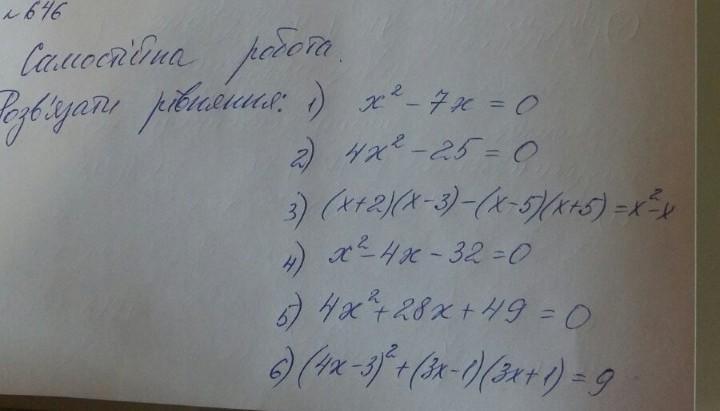 №646
Самостійна робота.
Розв'язати рівняння: 1) x² - 7x = 0
2) 4x² - 25 = 0
3) (x+2)(x-3) - (x-5)(x+5) = x² - x
4) x² - 4x - 32 = 0
5) 4x² + 28x + 49 = 0
6) (4x-3)² + (3x-1)(3x+1) = 9